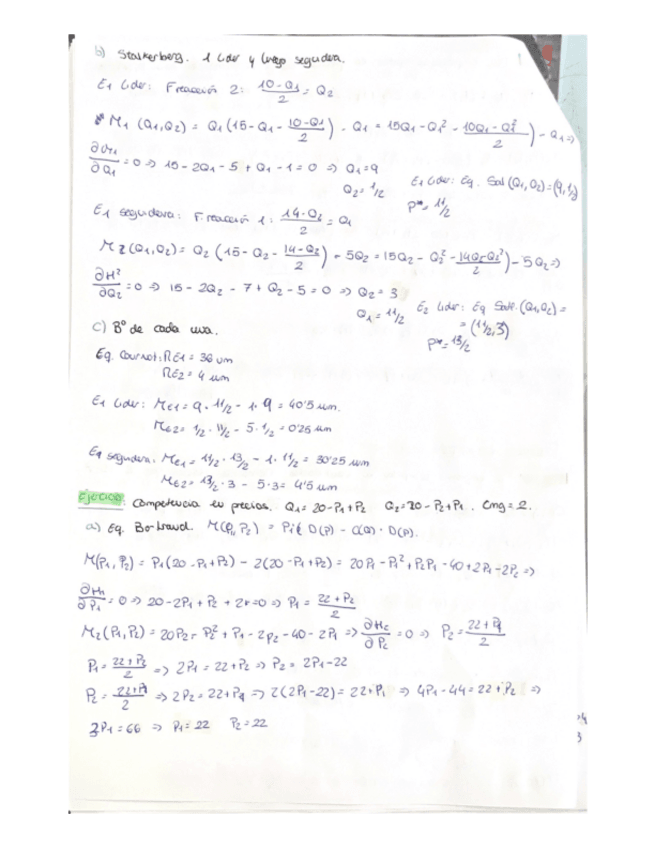 b) Stalkerberg. 1 Lider y luego seguidora.
E1 Lider: F reacción 2: (10-Q1)/2 = Q2
M1 (Q1,Q2) = Q1(15-Q1-(10-Q1)/2) - Q1 = 15Q1-Q1²-(10Q1-Q1²)/2) - Q1 =>
∂M1/∂Q1 = 0 => 15-2Q1-5+Q1-1=0 => Q1=9
Q2=1/2
E1 Lider: Eq. Stal (Q1,Q2)=(9,1/2)
P*=11/2
E1 seguidora: F. reacción 1: (14-Q2)/2 = Q1
M2(Q1,Q2)= Q2 (15-Q2-(14-Q2)/2) - 5Q2 = 15Q2-Q2²-(14Q2-Q2²)/2) - 5Q2 =>
∂M²/∂Q2 = 0 => 15-2Q2-7+Q2-5=0 => Q2=3
Q1=11/2
E2 Lider: Eq Stalk. (Q1,Q2)=
=(11/2,3)
P*=13/2
c) Bº de cada una.
Eq. Cournot: ME1 = 36 um
ME2 = 4 um
E1 Lider: ME1 = 9·11/2 - 1·9 = 40'5 um.
ME2= 1/2·11/2 - 5·1/2 = 0'25 um
E1 seguidora. ME1 = 11/2·13/2 - 1·11/2 = 30'25 um
ME2= 13/2·3 - 5·3= 4'5 um
Ejercicio: Competencia en precios. Q1=20-P1+P2 Q2=20-P2+P1. Cmg=2.
a) Eq. Bertrand. M(P1,P2) = Pi · D(P) - C(Q)·D(P).
M(P1,P2)= P1(20-P1+P2) - 2(20-P1+P2) = 20P1-P1²+P2P1-40+2P1-2P2 =>
∂M1/∂P1 = 0 => 20-2P1+P2+2=0 => P1= (22+P2)/2
M2(P1,P2)=20P2-P2²+P1-2P2-40-2P1 => ∂M2/∂P2 = 0 => P2= (22+P1)/2
P1= (22+P2)/2 => 2P1=22+P2 => P2=2P1-22
P2= (22+P1)/2 => 2P2=22+P1 => 2(2P1-22)=22+P1 => 4P1-44=22+P2 =>
3P1=66 => P1=22 P2=22